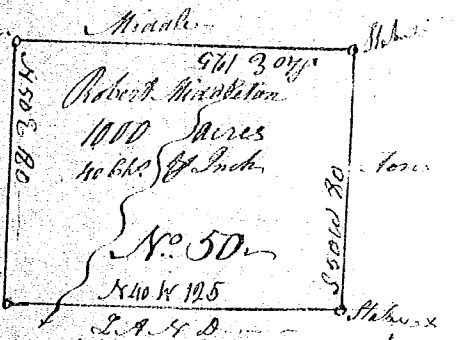 Middle
Stake
S40E 125
Robert Middleton
1000 acres
40 Chs. pr Inch
N50E 80
S50W 80
ton
No. 50
N40W 125
Stake x
LAND